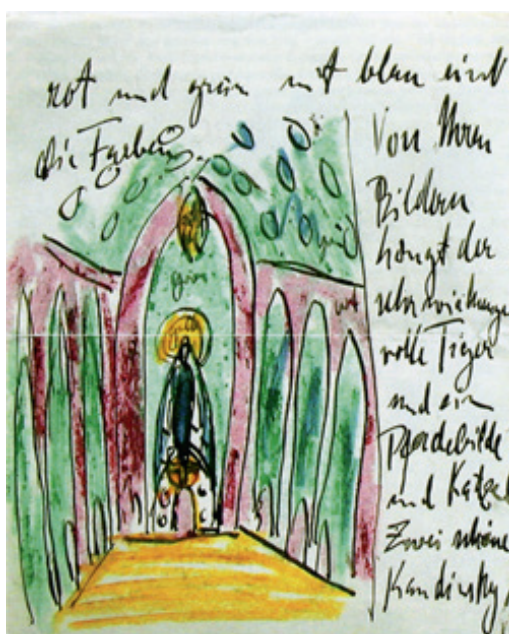 rot und grün mit blau sind
die Farben
Von Ihren
Bildern
hängt der
sehr wirkungs
volle Tiger
und ein
Pferdebilde
und Katze
Zwei schöne
Kandinsky
grün
rot